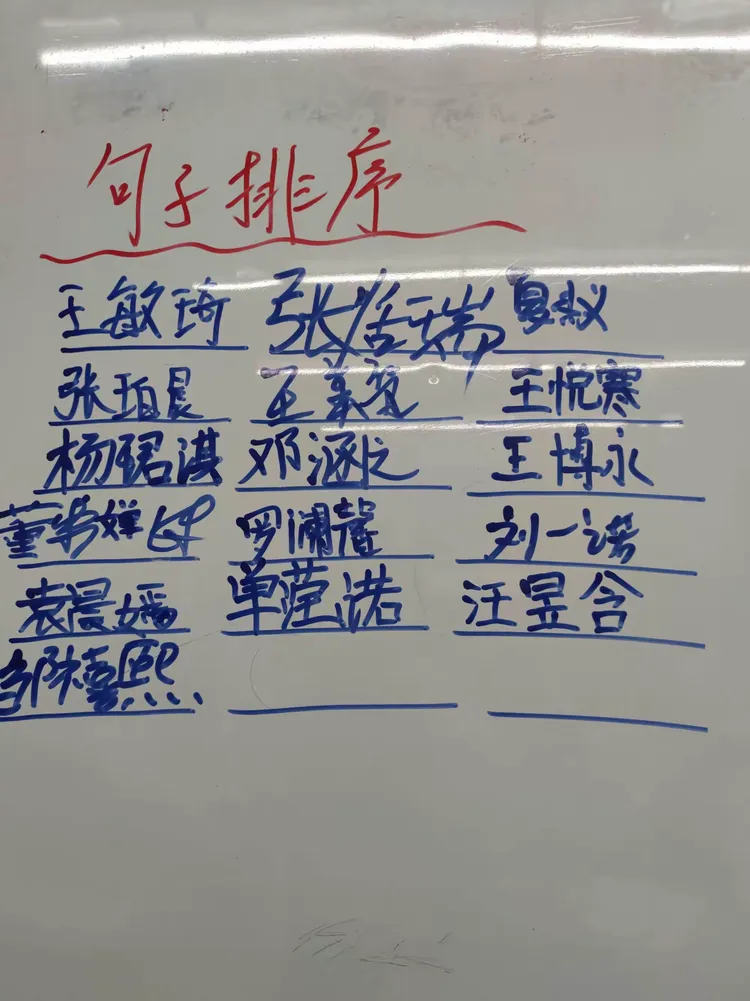 句子排序
王敏琦 张恬瑞
张珀晨 王悦寒
杨珺淇 邓涵之 王博永
董书婵 罗澜馨 刘一诺
袁晨嫣 单莹诺 汪昱含
邹熹熙